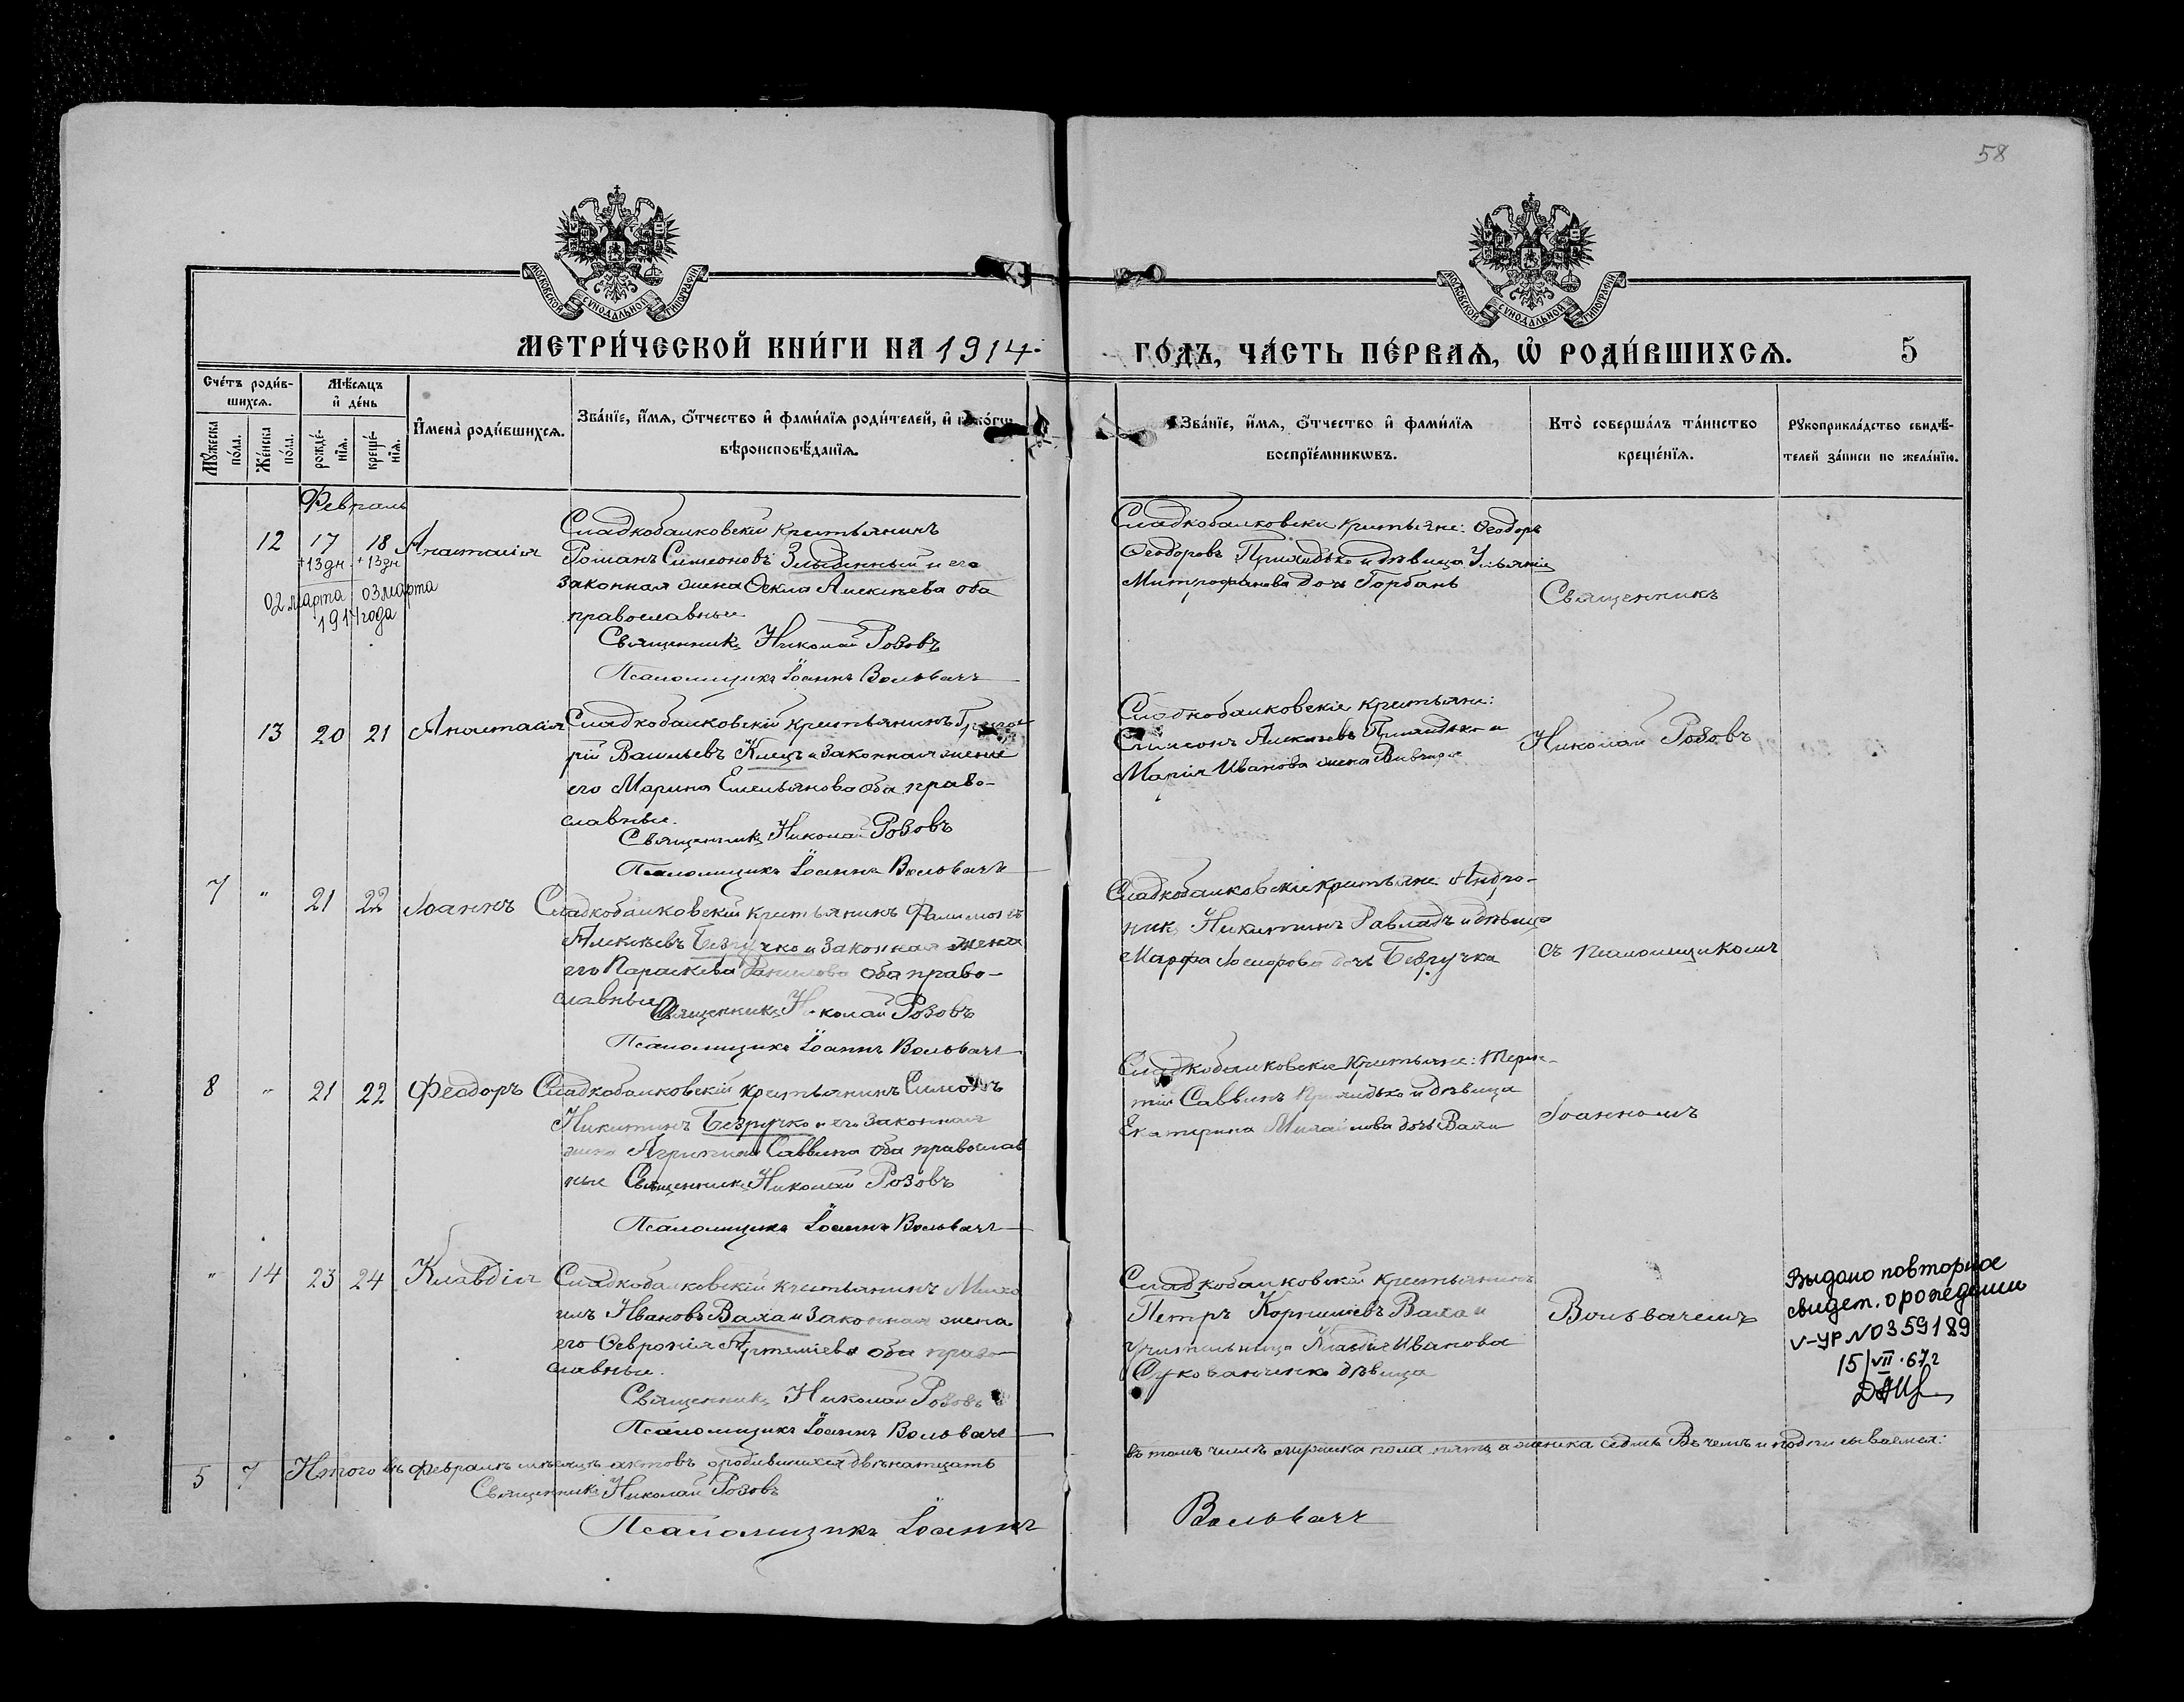 58
МОСКОВСКОЙ СУНОДАЛЬНОЙ ТИПОГРАФІИ
МОСКОВСКОЙ СУНОДАЛЬНОЙ ТИПОГРАФІИ
МЕТРИ́ЧЕСКОЙ КНИ́ГИ НА 1914
ГО́ДЪ, ЧА́СТЬ ПЕ́РВАѦ, Ѡ҆ РОДИ́ВШИХСѦ. 5
Сче́тъ роди́в-
шихсѧ.
Мꙋ́жеска по́ла.
Же́нска по́ла.
Мѣ́сѧцъ
и҆ де́нь
рожде́-
нїѧ.
креще́-
нїѧ.
И҆мена̀ роди́вшихсѧ.
Зва́нїе, и҆́мѧ, ѻ҆́тчество и҆ фами́лїѧ роди́телей, и҆
вѣроисповѣ́данїѧ.
Зва́нїе, и҆́мѧ, ѻ҆́тчество и҆ фами́лїѧ
воспрїе́мникѡвъ.
Кто̀ соверша́лъ та́инство
креще́нїѧ.
Рꙋкоприкла́дство свидѣ́-
телей за́писи по жела́нїю.
Февраль
12 17 18 Анастасія
+13дн. +13дн
02 марта 03 марта
1914 года
Сладкобалковскій крестьянинъ
Романъ Симеоновъ Злыденный и его
законная жена Ѳекла Алексѣева оба
православные
Священникъ Николай Розовъ
Псаломщикъ Іоаннъ Вольвачъ
Сладкобалковскіе крестьяне: Ѳеодоръ
Ѳеодоровъ Приходько и дѣвица Ульянія
Митрофанова дочь Горбань
Священникъ
13 20 21 Анастасія
Сладкобалковскій крестьянинъ
рій Васильевъ Клецъ и законная жена
его Марина Емельянова оба право-
славные.
Священникъ Николай Розовъ
Псаломщикъ Іоаннъ Вольвачъ
Сладкобалковскіе крестьяне:
Симеонъ Алексѣевъ Приходько и
Марія Иванова жена
Николай Розовъ
7 " 21 22 Іоаннъ
Сладкобалковскій крестьянинъ Филимонъ
Алексѣевъ Безручко и законная жена
его Параскева Данилова оба право-
славные
Священникъ Николай Розовъ
Псаломщикъ Іоаннъ Вольвачъ
Сладкобалковскіе крестьяне Андро-
никъ Никитинъ и дѣвица
Марфа дочь Безручка
съ псаломщикомъ
8 " 21 22 Феодоръ
Сладкобалковскій крестьянинъ Симеонъ
Никитинъ Безручко и его законная
жена Агрипина Саввина оба православ
ные Священникъ Николай Розовъ
Псаломщикъ Іоаннъ Вольвачъ
Сладкобалковскіе крестьяне: Терен-
тій Саввинъ Приходько и дѣвица
Екатерина Михайлова дочь Вахи
Іоанномъ
" 14 23 24 Клавдія
Сладкобалковскій крестьянинъ Миха
илъ Ивановъ Ваха и законная жена
его Ѳевронія Артеміева оба право-
славные.
Священникъ Николай Розовъ
Псаломщикъ Іоаннъ Вольвачъ
Сладкобалковскій крестьянинъ
Петръ Корниліевъ Ваха и
учительница Клавдія Иванова
дѣвица
Вольвачемъ
Выдано повторное
свидет. о рождении
V-УР № 0359189
15/VII·67г
5 7 Итого въ Февралѣ мѣсяцѣ актовъ о родившихся двѣнатцать
въ томъ числѣ мужеска пола пять а женска седмь Въ чемъ и подписываемся:
Священникъ Николай Розовъ
Псаломщикъ Іоаннъ
Вольвачъ